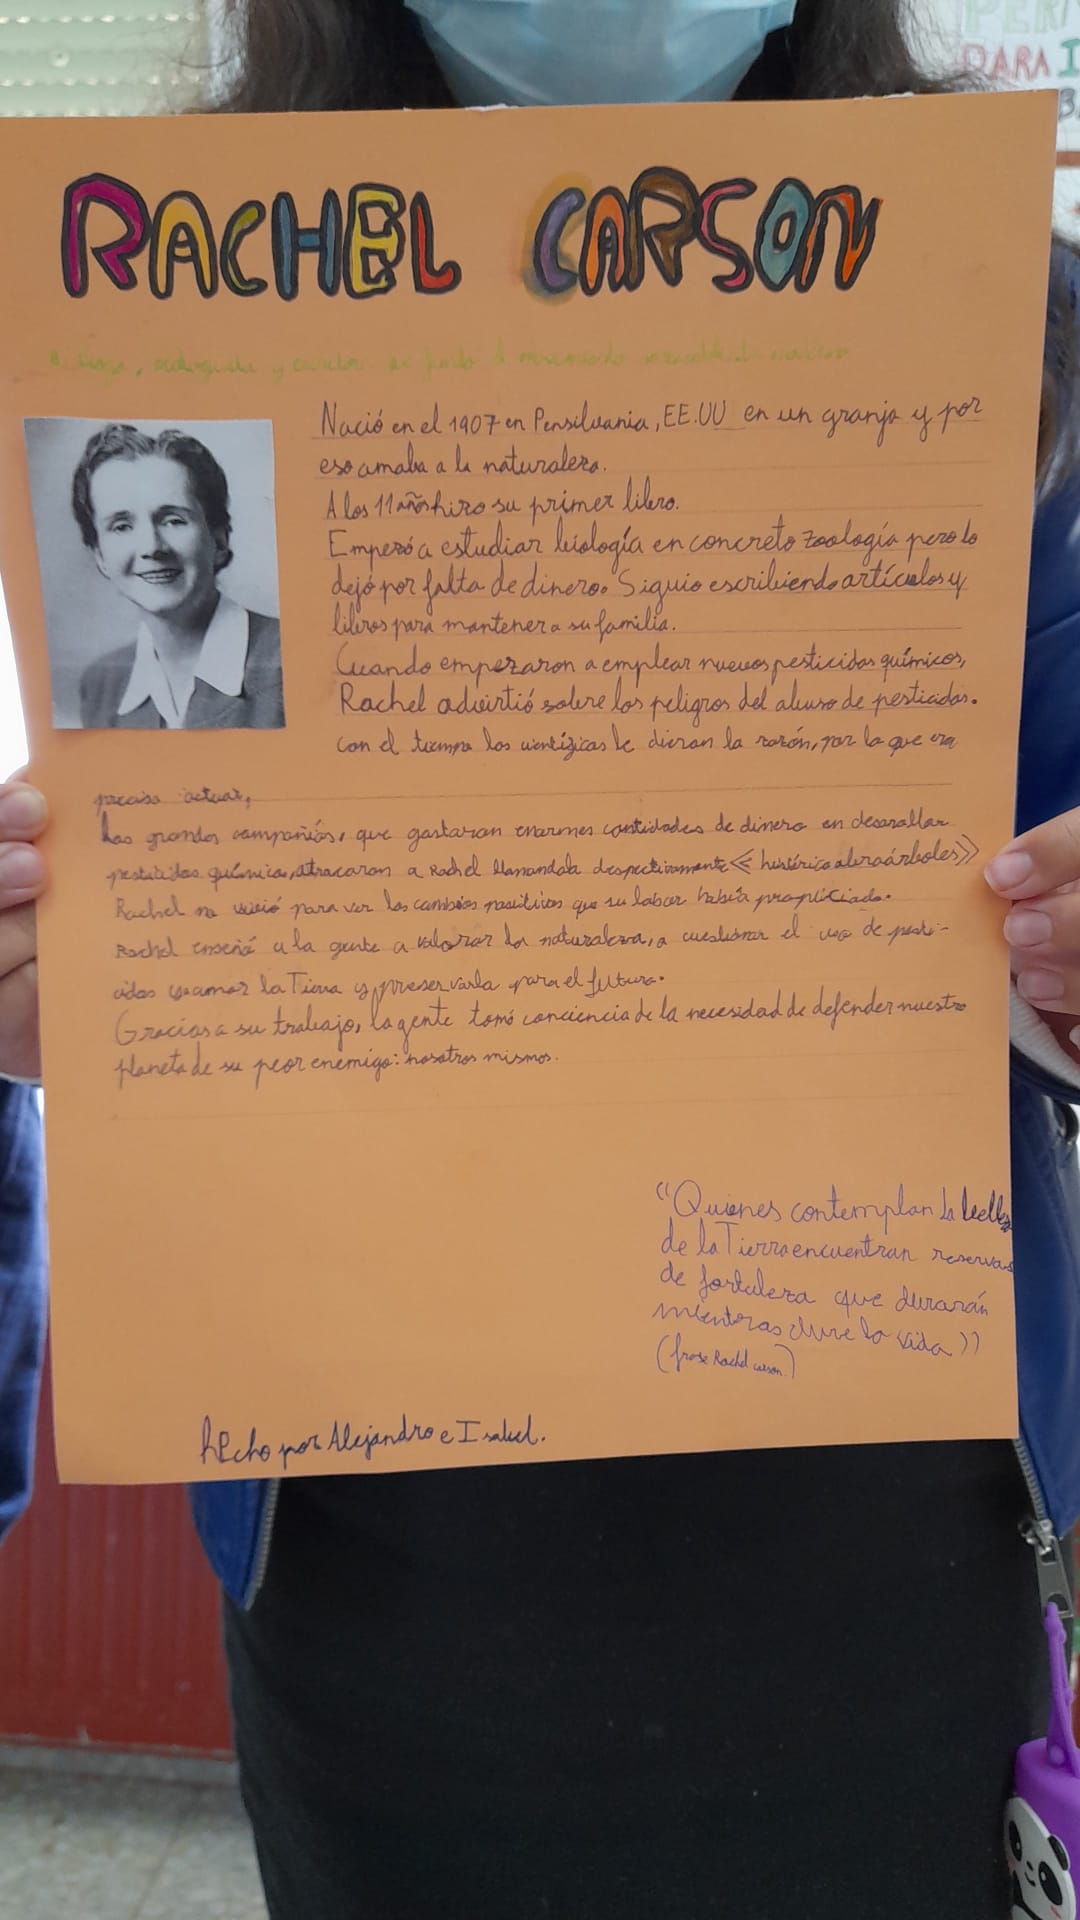 PARA
RACHEL CARSON
y
Nació en el 1907 en Pensilvania, EE.UU en un granja y por
eso amaba a la naturaleza.
A los 11 años hizo su primer libro.
Empezó a estudiar biología en concreto zoología pero lo
dejó por falta de dinero. Siguio escribiendo artículos y
libros para mantener a su familia.
Cuando empezaron a emplear nuevos pesticidas químicos,
Rachel advirtió sobre los peligros del abuso de pesticidas.
con el tiempo los científicos le dieron la razón, por lo que era
preciso actuar,
Las grandes compañías, que gastaron enormes cantidades de dinero en desarollar
pesticidas químicos, atacaron a Rachel llamandola despectivamente << histérica abrazárboles>>
Rachel no vivió para ver los cambios positivos que su labor había propiciado.
Rachel enseñó a la gente a valorar la naturaleza, a cuestionar el uso de pesti-
cidas y a amar la Tierra y preservarla para el futuro.
Gracias a su trabajo, la gente tomó conciencia de la necesidad de defender nuestro
planeta de su peor enemigo: nosotros mismos.
"Quienes contemplan la belleza
de la Tierra encuentran reservas
de fortaleza que durarán
mientras dure la vida"
(frase Rachel carson.)
hecho por Alejandro e Isabel.